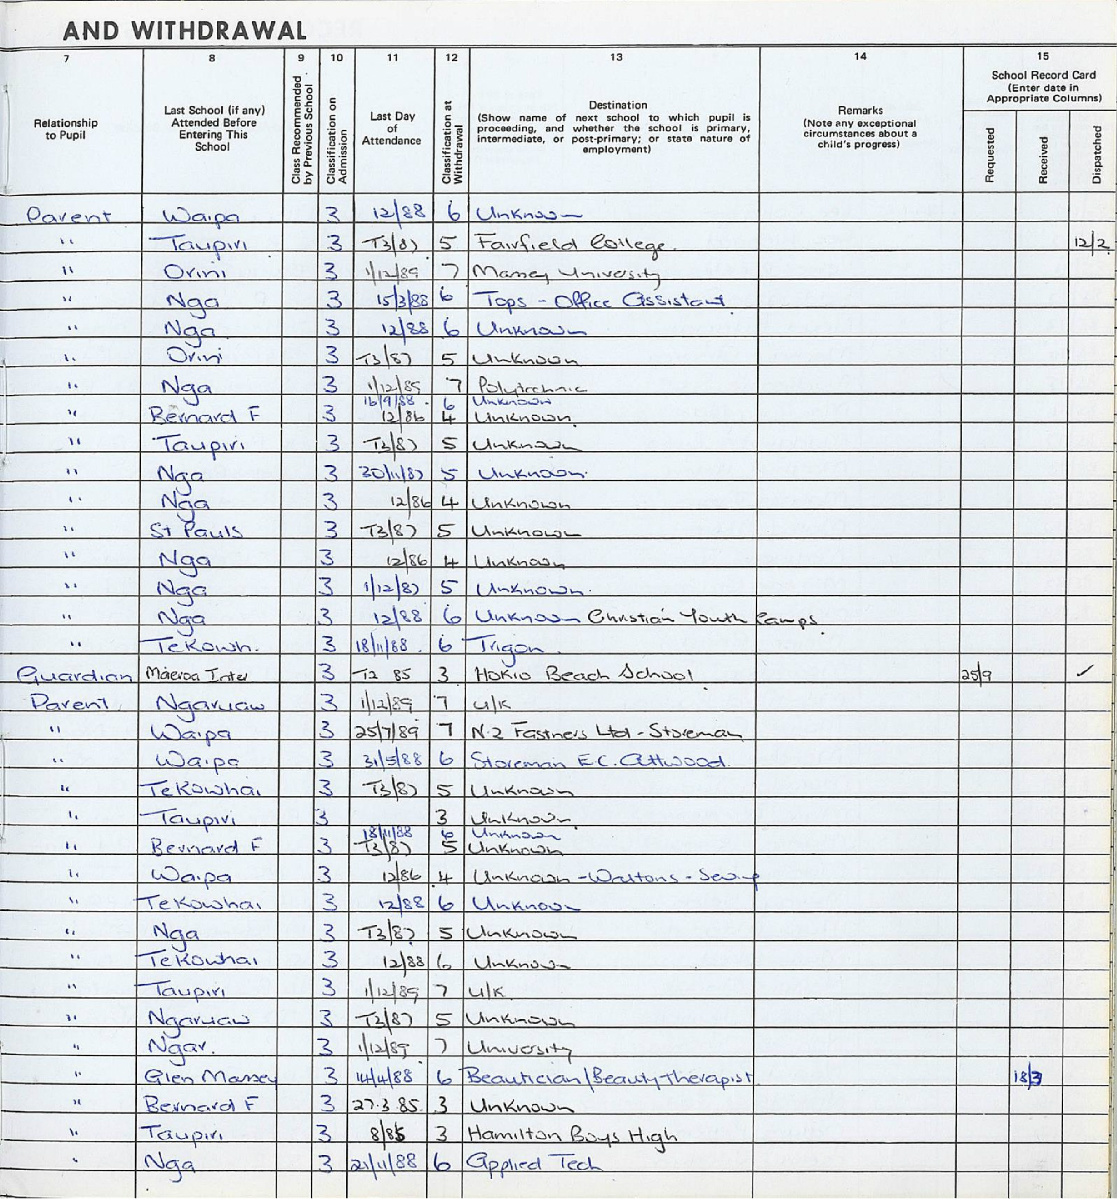 AND WITHDRAWAL
7 8 9 10 11 12 13 14 15
Relationship to Pupil
Last School (if any) Attended Before Entering This School
Class Recommended by Previous School
Classification on Admission
Last Day of Attendance
Classification at Withdrawal
Destination
(Show name of next school to which pupil is proceeding, and whether the school is primary, intermediate, or post-primary; or state nature of employment)
Remarks
(Note any exceptional circumstances about a child's progress)
School Record Card
(Enter date in Appropriate Columns)
Requested
Received
Dispatched
Parent Waipa 3 12/88 6 Unknown
" Taupiri 3 T3/87 5 Fairfield College. 12/2
" Orini 3 1/12/89 7 Massey University
" Nga 3 15/3/88 6 Tops - Office Assistant
" Nga 3 12/88 6 Unknown
" Orini 3 T3/87 5 Unknown
" Nga 3 1/12/89 7 Polytechnic
16/9/88 . 6 Unknown
" Bernard F 3 12/86 4 Unknown.
" Taupiri 3 T3/87 5 Unknown
" Nga 3 30/11/87 5 Unknown.
" Nga 3 12/86 4 Unknown
" St Pauls 3 T3/87 5 Unknown
" Nga 3 12/86 4 Unknown
" Nga 3 1/12/87 5 Unknown.
" Nga 3 12/88 6 Unknown Christian Youth Camps.
" Te Kowh. 3 18/11/88 6 Trigon.
Guardian Maeroa Inter 3 T2 85 3 Hokio Beach School 25/9 ✓
Parent Ngaruaw 3 1/12/89 7 U/K
" Waipa 3 25/7/89 7 N.Z Fastners Ltd - Storeman
" Waipa 3 31/5/88 6 Storeman E.C. Attwood.
" Te Kowhai 3 T3/87 5 Unknown
" Taupiri 3 3 Unknown.
18/11/88 6 Unknown
" Bernard F 3 T3/87 5 Unknown
" Waipa 3 12/86 4 Unknown - Waltons - Sewing
" Te Kowhai 3 12/88 6 Unknown
" Nga 3 T3/87 5 Unknown
" Te Kowhai 3 12/88 6 Unknown
" Taupiri 3 1/12/89 7 U/K.
" Ngaruaw 3 T3/87 5 Unknown
" Ngar. 3 1/12/89 7 University
" Glen Massey 3 14/4/88 6 Beautician/Beauty Therapist 18/3
" Bernard F 3 27.3.85. 3 Unknown
" Taupiri 3 8/85 3 Hamilton Boys High
" Nga 3 21/11/88 6 Applied Tech